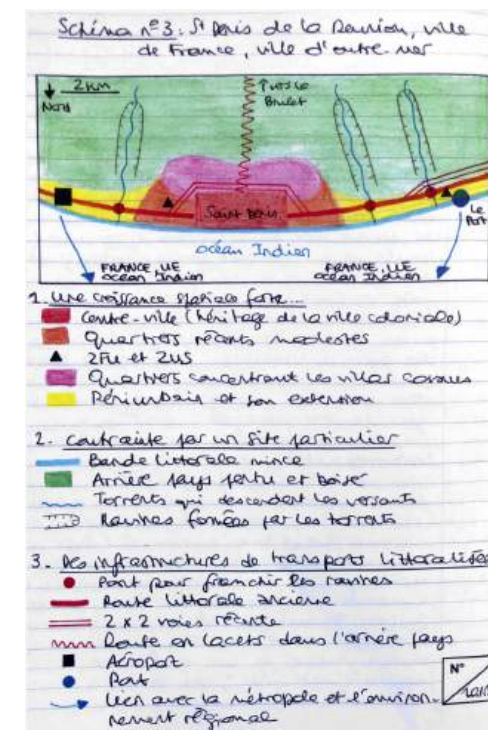 Schéma n°3 : St Denis de la Réunion, ville
de France, ville d'outre-mer
2 km
Nord
↑ vers le
Brulet
Saint Denis
Le
Port
océan Indien
FRANCE, UE
océan Indien
FRANCE, UE
océan Indien
1. Une croissance spatiale forte...
Centre-ville (héritage de la ville coloniale)
Quartiers récents modestes
ZFU et ZUS
Quartiers concentrant les villas cossues
Périurbain et son extension
2. Contrainte par un site particulier
Bande littorale mince
Arrière pays pentu et boisé
Torrents qui descendent les versants
Ravines formées par les torrents
3. Des infrastructures de transports littoralisées
Pont pour franchir les ravines
Route littorale ancienne
2 x 2 voies récente
Route en lacets dans l'arrière pays
Aéroport
Port
Lien avec la métropole et l'environ-
nement régional
N°